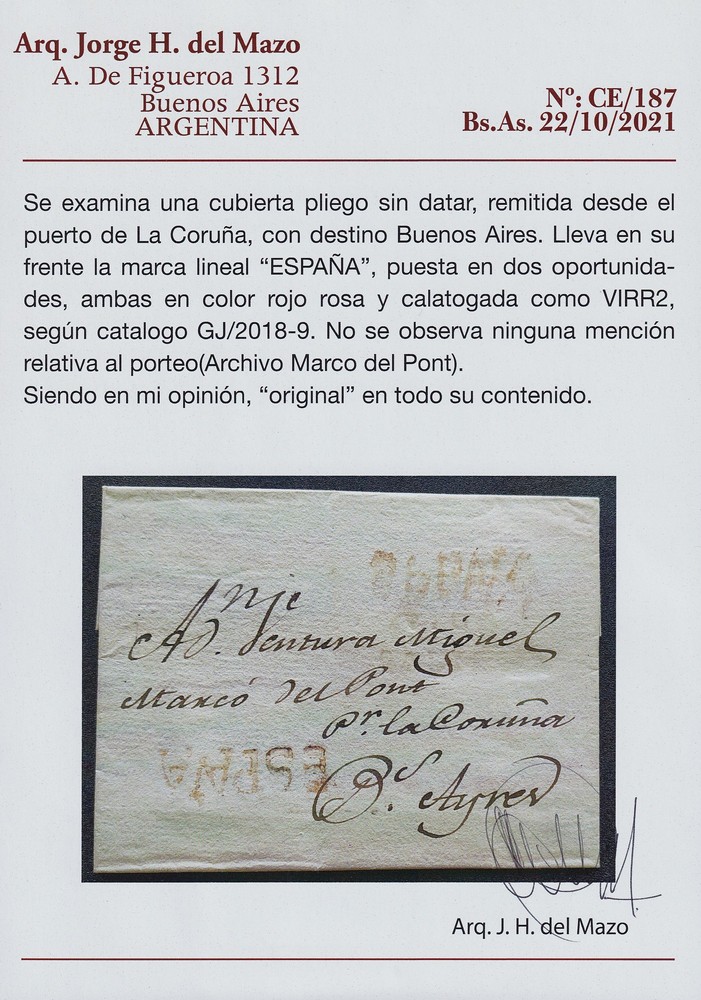 Arq. Jorge H. del Mazo
A. De Figueroa 1312
Buenos Aires
ARGENTINA
Nº: CE/187
Bs.As. 22/10/2021
Se examina una cubierta pliego sin datar, remitida desde el
puerto de La Coruña, con destino Buenos Aires. Lleva en su
frente la marca lineal “ESPAÑA”, puesta en dos oportunida-
des, ambas en color rojo rosa y calatogada como VIRR2,
según catalogo GJ/2018-9. No se observa ninguna mención
relativa al porteo(Archivo Marco del Pont).
Siendo en mi opinión, “original” en todo su contenido.
ESPAÑA
A D. Ventura Miguel
Marcó del Pont
Pr. la Coruña
ESPAÑA
Bs. Ayres
Arq. J. H. del Mazo